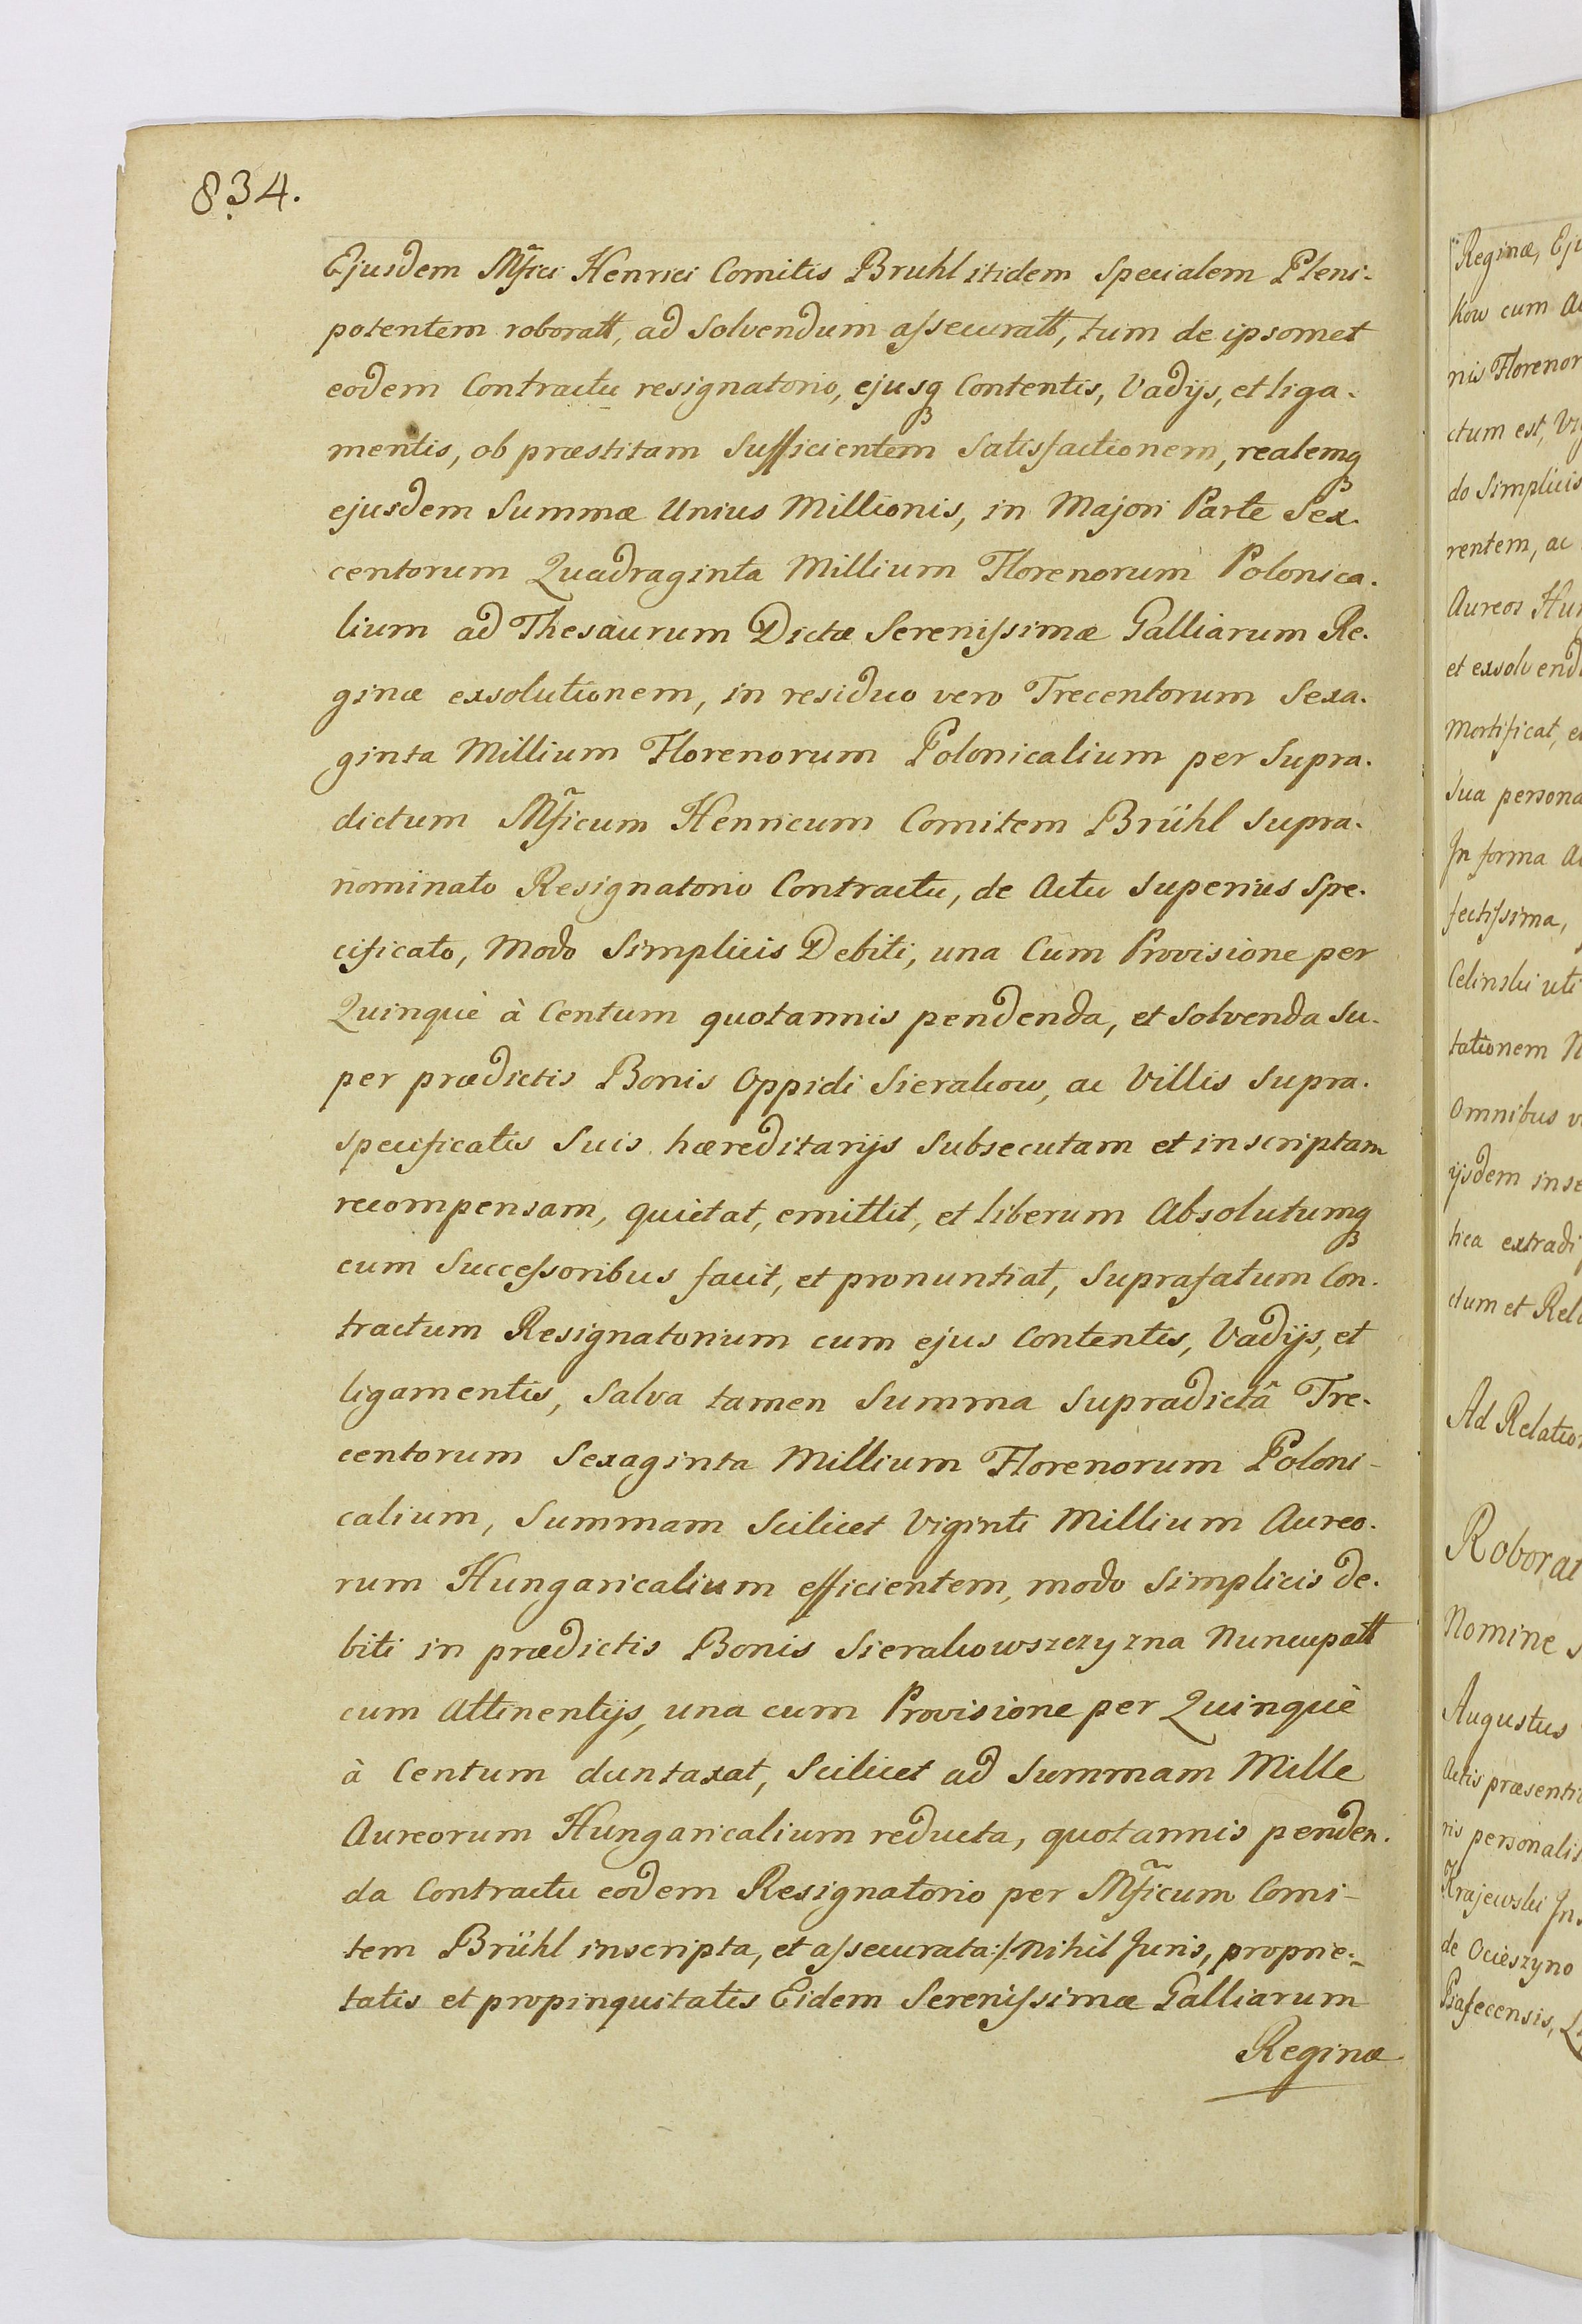 834.
Ejusdem Mf̃ici Henrici Comitis Bruhl itidem Specialem Pleni-
potentem roboratt, ad Solvendum assecuratt, tum de ipsomet
eodem Contractu resignatorio, ejusq₃ Contentis, Vadijs, et liga-
mentis, ob præstitam Sufficientem Satisfactionem, realemq₃
ejusdem Summæ Unius Millionis, in Majori Parte Sex-
centorum Quadraginta Millium Florenorum Polonica-
lium ad Thesaurum Dictæ Serenissimæ Galliarum Re-
ginæ exsolutionem, in residuo vero Trecentorum Sexa-
ginta Millium Florenorum Polonicalium per Supra-
dictum Mf̃icum Henricum Comitem Brühl Supra-
nominato Resignatorio Contractu, de Actu Superius Spe-
cificato, Modo Simplicis Debiti, una Cum Provisione per
Quinquè à Centum quotannis pendenda, et Solvenda Su-
per prædictis Bonis Oppidi Sierakow, ac Villis Supra-
specificatis Suis hæreditarijs Subsecutam et inscriptam
recompensam, quietat, emittit, et liberum Absolutumq₃
cum Successoribus facit, et pronuntiat, Suprafatum Con-
tractum Resignatorium cum ejus Contentis, Vadijs, et
ligamentis, Salva tamen Summa Supradictâ Tre-
centorum Sexaginta Millium Florenorum Poloni-
calium, Summam Scilicet Viginti Millium Aureo-
rum Hungaricalium efficientem, modo Simplicis de-
biti in prædictis Bonis Sierakowszczyzna Nuncupatt
cum Attinentijs, una cum Provisione per Quinquè
à Centum duntaxat, Scilicet ad Summam Mille
Aureorum Hungaricalium reducta, quotannis penden-
da Contractu eodem Resignatorio per Mf̃icum Comi-
tem Brühl inscripta, et assecurata:/ Nihil Juris, proprie-
tatis et propinquitatis Eidem Serenissimæ Galliarum
Reginæ
Reginæ, Eju
kow cum A
nis Florenor
ctum est, Vi
do Simplicis
rentem, ac
Aureos Hun
et exsolvend
Mortificat, e
Sua persona
In forma A
fectissima,
Celinski uti
tationem N
Omnibus v
ijsdem inse
tica extradi
ctum et Rela
Ad Relation
Roborat
Nomine S
Augustus
Actis præsenti
ris personalis
Krajewski Ju
de Ocieszyno
Piasecensis,